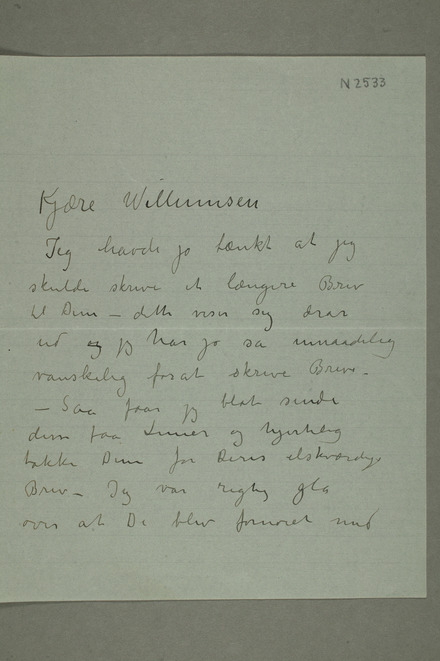 N 2533
Kjære Willumsen
Jeg havde jo tænkt at jeg
skulde skrive et længere Brev
til Dem – dette viser sig
ud og jeg har jo så umaadelig
vanskelig forat skrive Breve –
– Saa faar jeg blot sende
disse faa Linier og hjertelig
takke Dem for Deres elskværdige
Brev – Jeg var rigtig gla
over at De blev fornøiet med